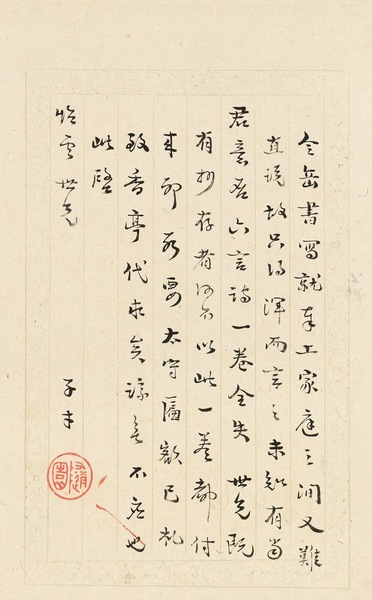 令岳書寫就奉上家庭之間又難
直說故只得渾而言之未知有當
君意否六言詩一卷全失 世兄既
有抄存者何不以此一卷都付
来 要太守匾額已札
致香亭代求矣諒無不应也
此覆
世兄
子才